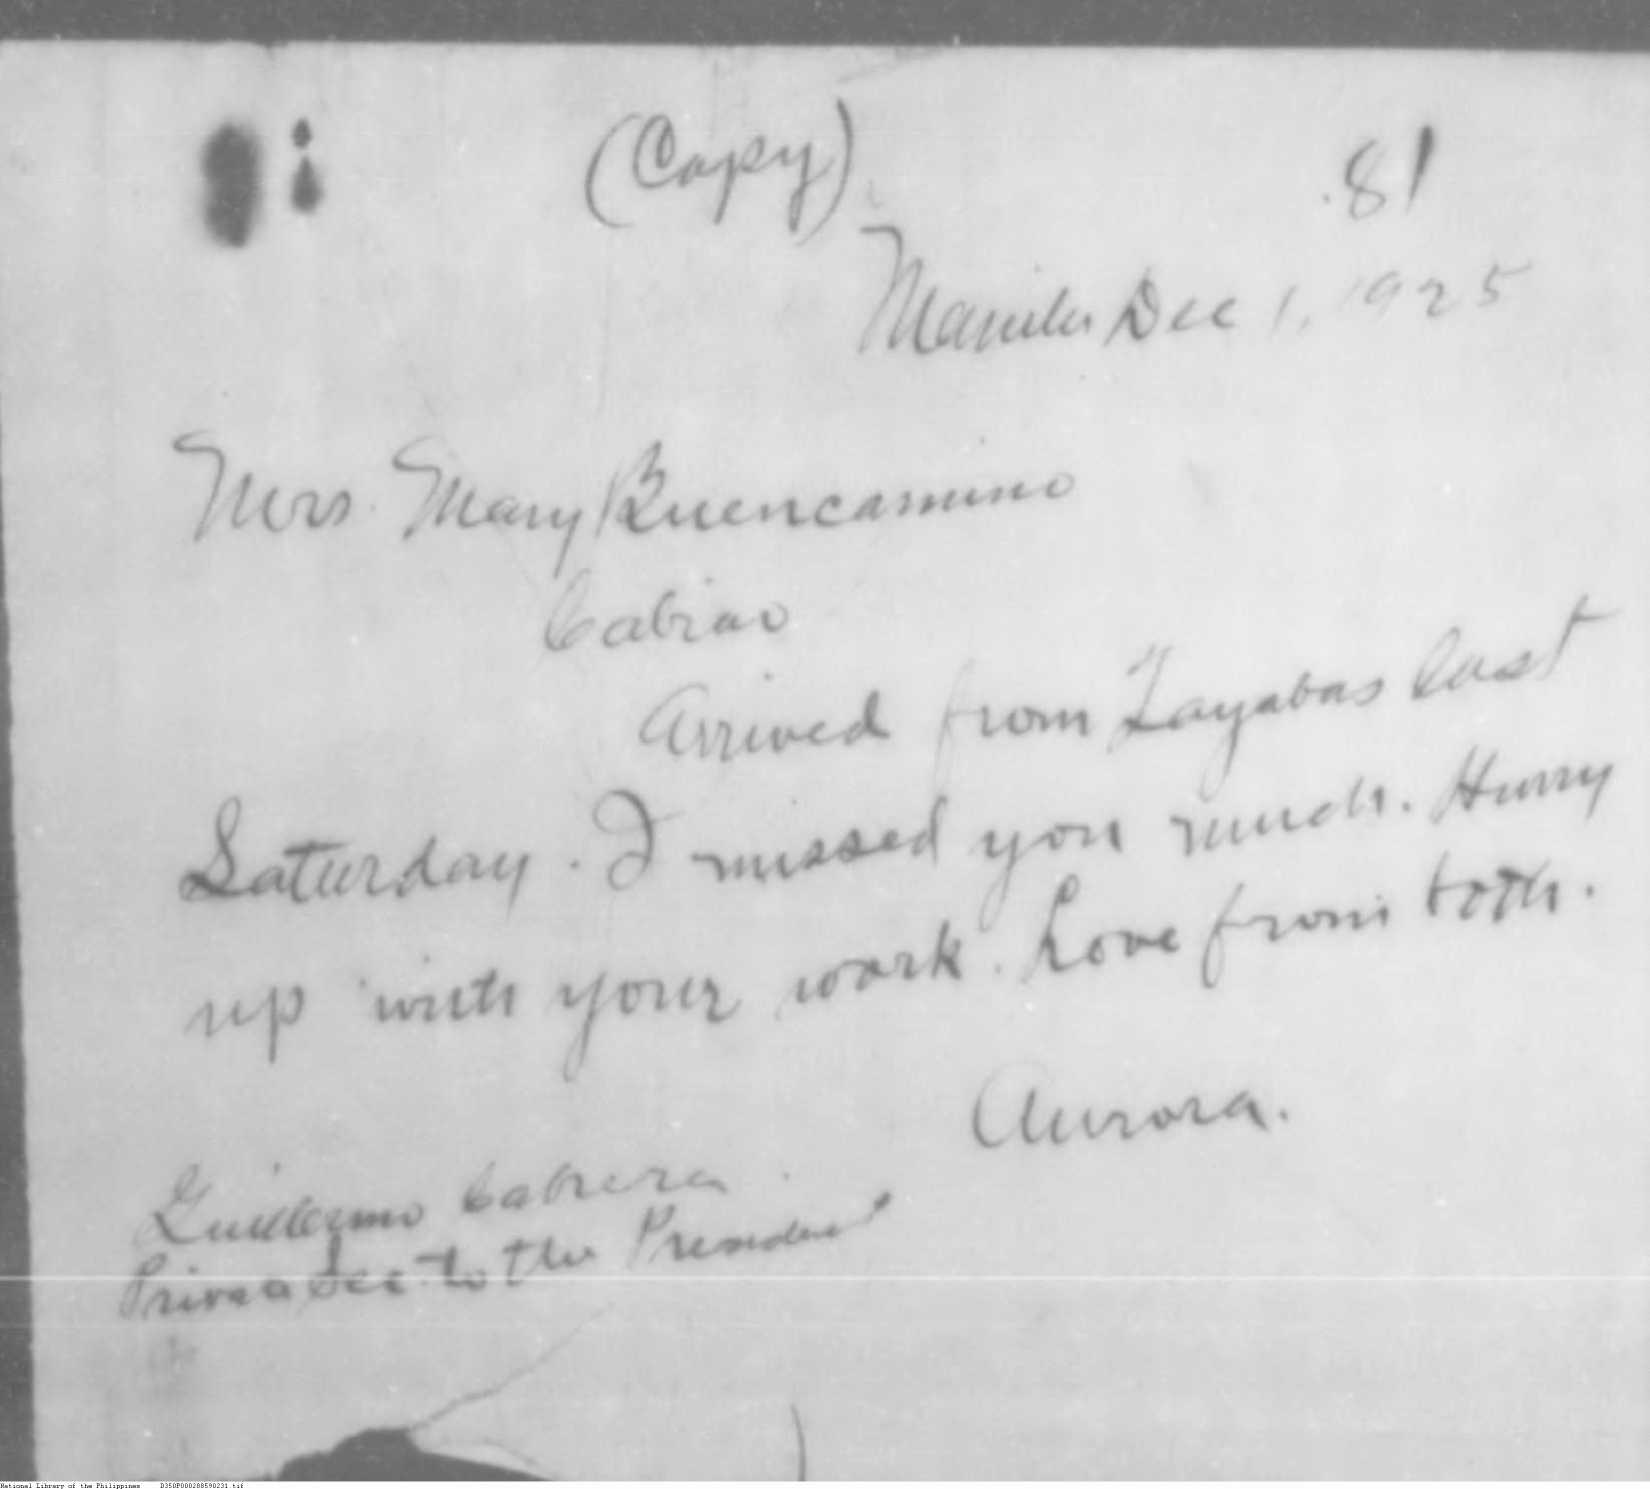 (Copy)
81
Manila Dec 1, 1925
Mrs. Mary Buencamino
Cabiao
Arrived from Tayabas last
Saturday. I missed you much. Hurry
up with your work. Love from both.
Aurora.
Guillermo Cabrera
Private Sec. to the President
National Library of the Philippines D350P000288590231.tif